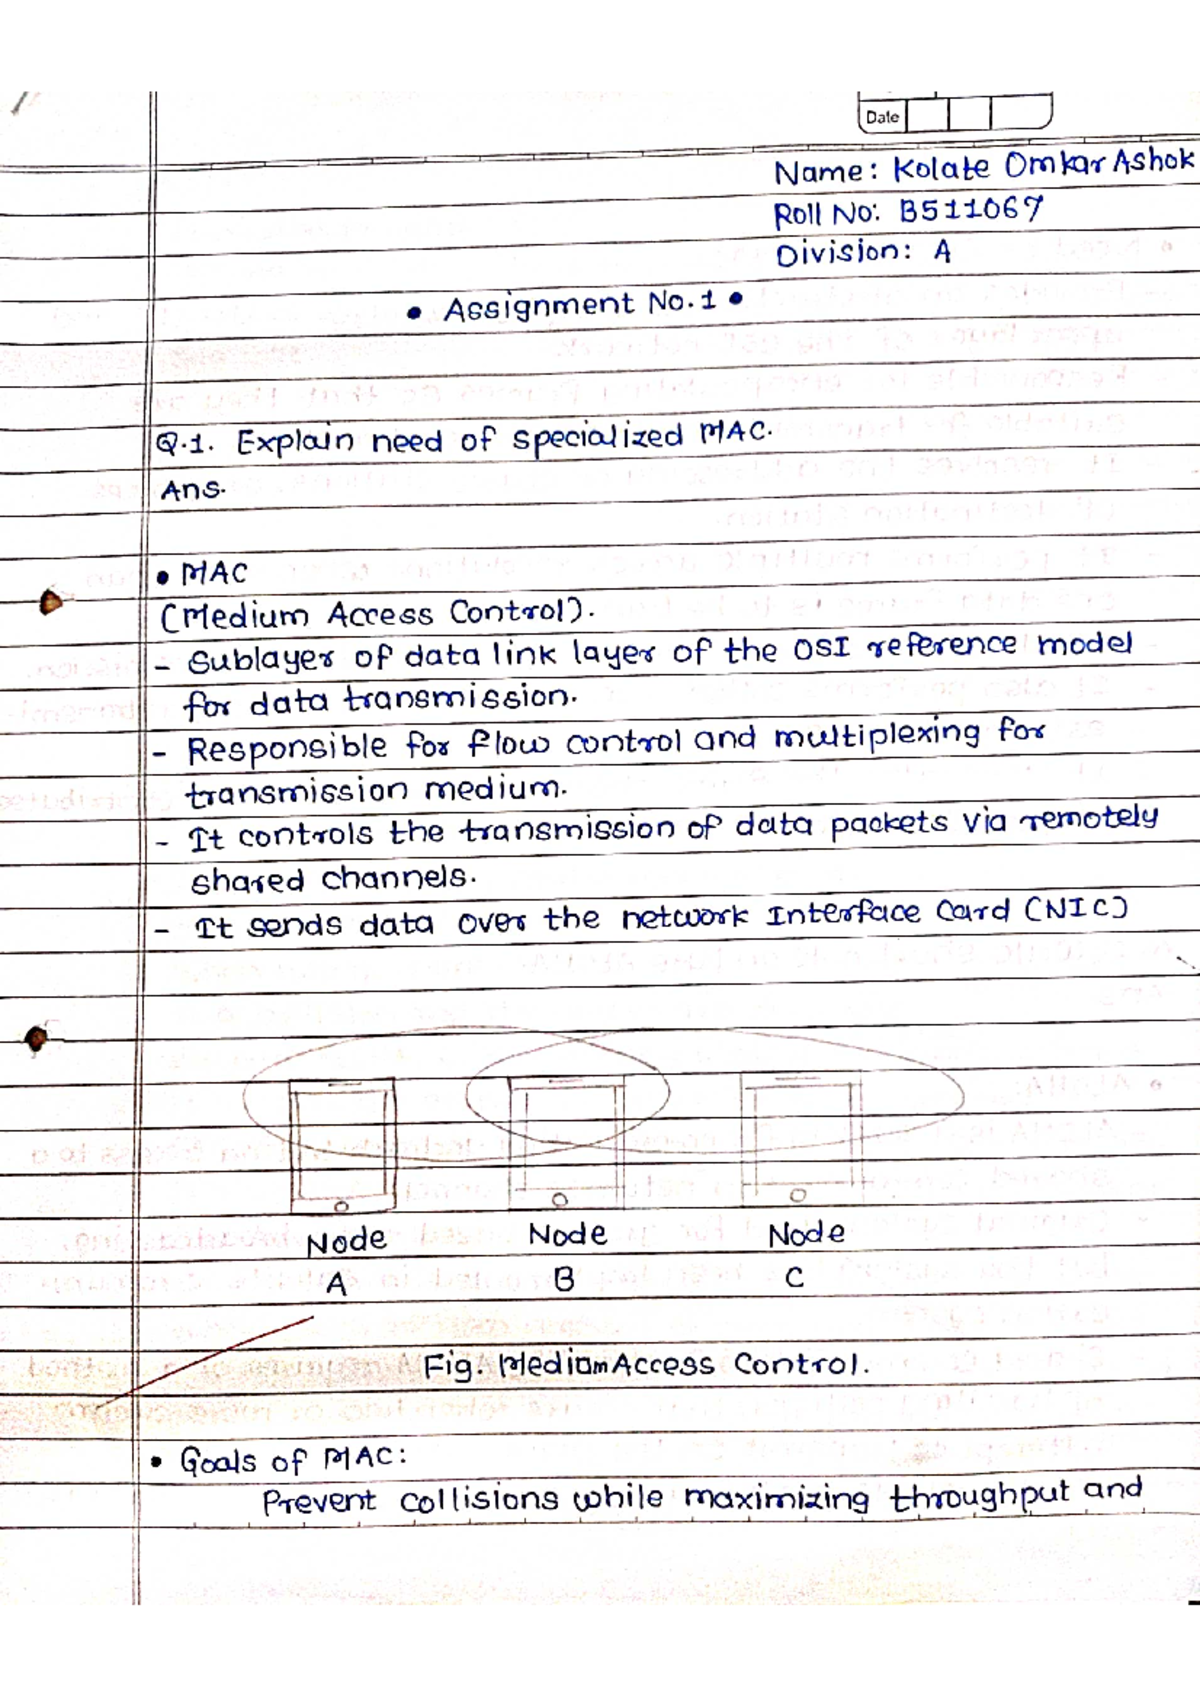 Date
Name: Kolate Omkar Ashok
Roll No: B511067
Division: A
• Assignment No.1 •
Q.1. Explain need of specialized MAC.
Ans.
• MAC
(Medium Access Control).
- Sublayer of data link layer of the OSI reference model
for data transmission.
- Responsible for flow control and multiplexing for
transmission medium.
- It controls the transmission of data packets via remotely
shared channels.
- It sends data over the network Interface Card (NIC)
Node Node Node
A B C
Fig. Mediom Access Control.
• Goals of MAC:
Prevent collisions while maximizing throughput and